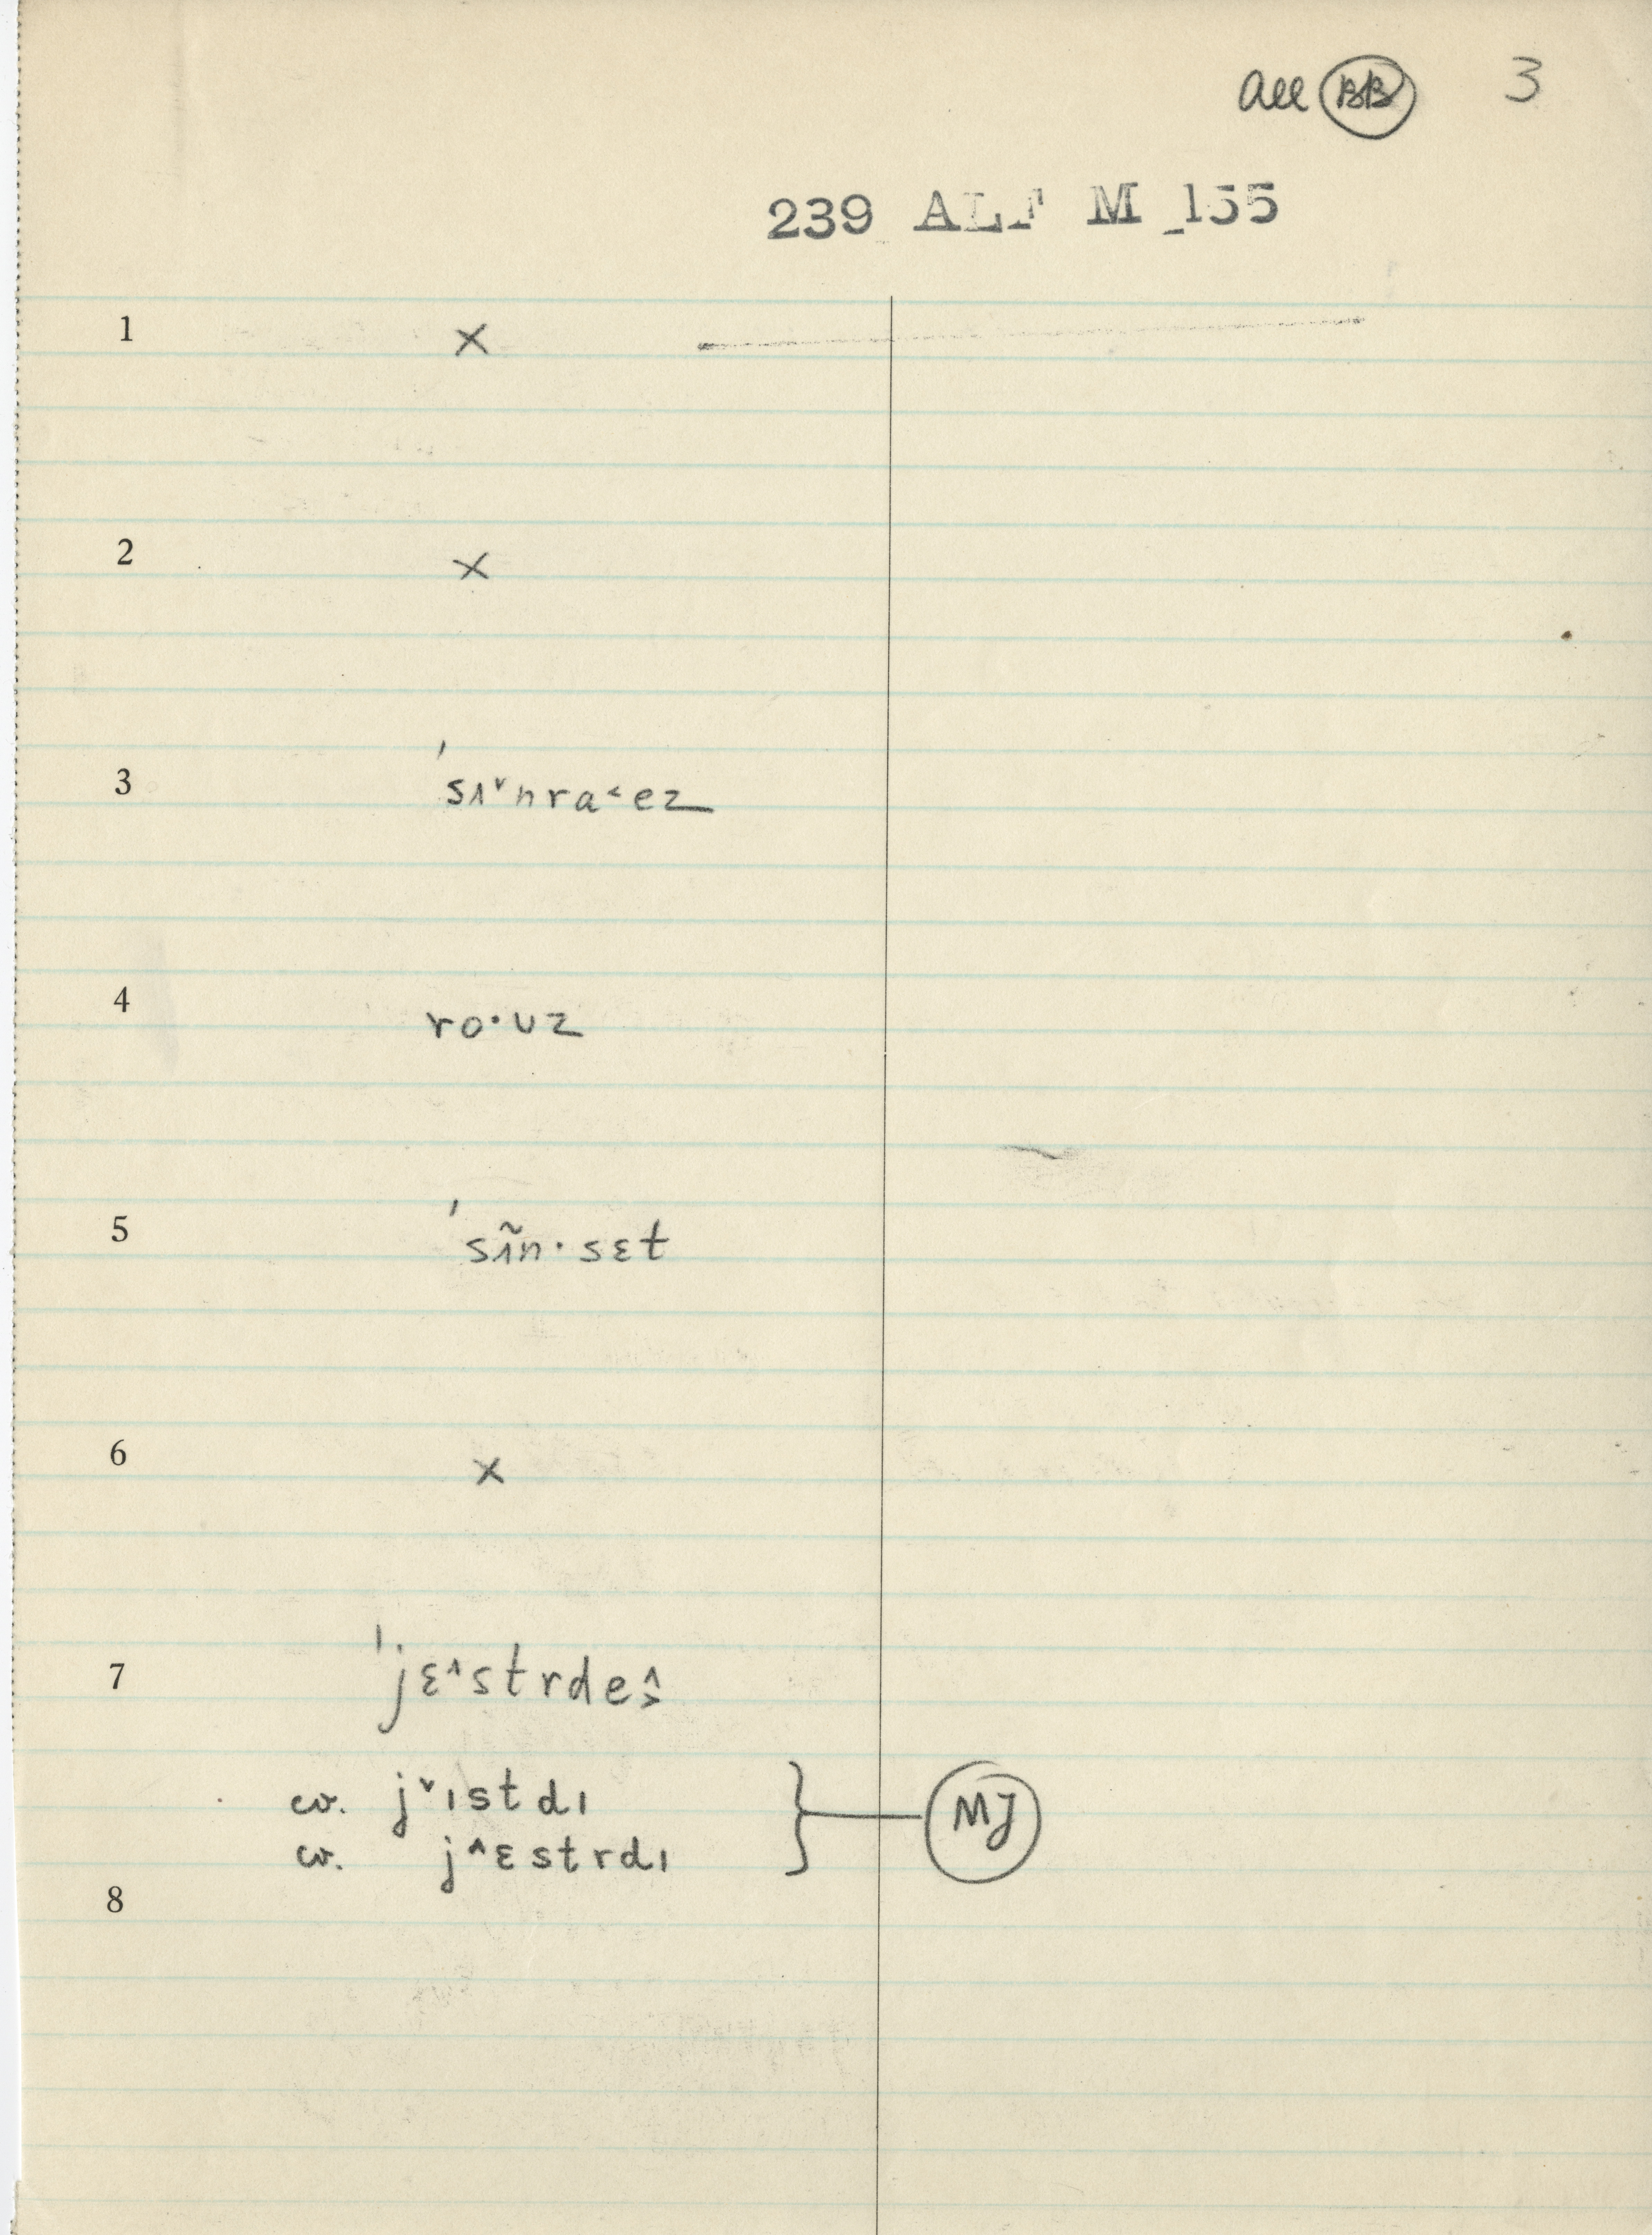 all BB 3
239 ALF M 155
1 x
2 x
3 ˈsɪ˅nra˂ez
4 ro·ʊz
5 ˈsɪ̃n·sɛt
6 x
7 ˈjɛ˄strde
cv. j˅ɪstdɪ
MJ
cv. j˄ɛstrdɪ
8